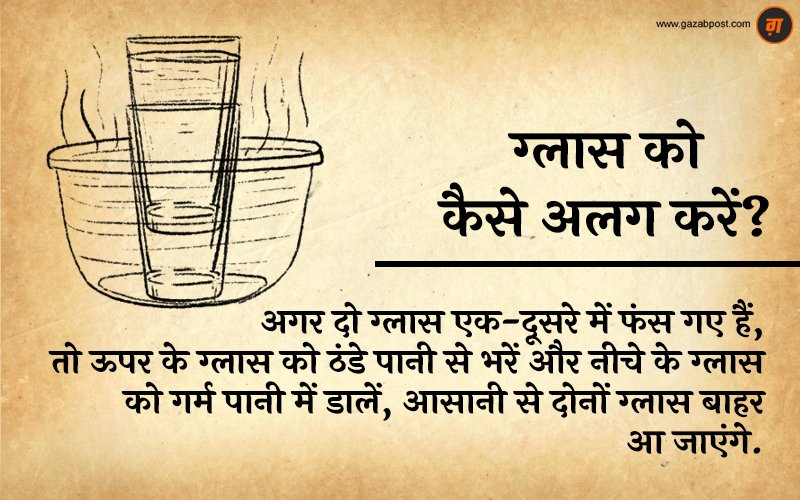 www.gazabpost.com
ग़
ग्लास को
कैसे अलग करें?
अगर दो ग्लास एक-दूसरे में फंस गए हैं,
तो ऊपर के ग्लास को ठंडे पानी से भरें और नीचे के ग्लास
को गर्म पानी में डालें, आसानी से दोनों ग्लास बाहर
आ जाएंगे.